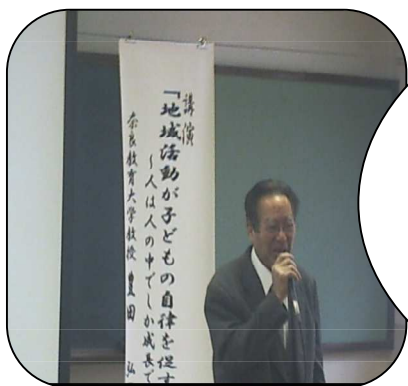 講演
「地域活動が子どもの自律を促す
～人は人の中でしか成長で
奈良教育大学教授 豊田 弘